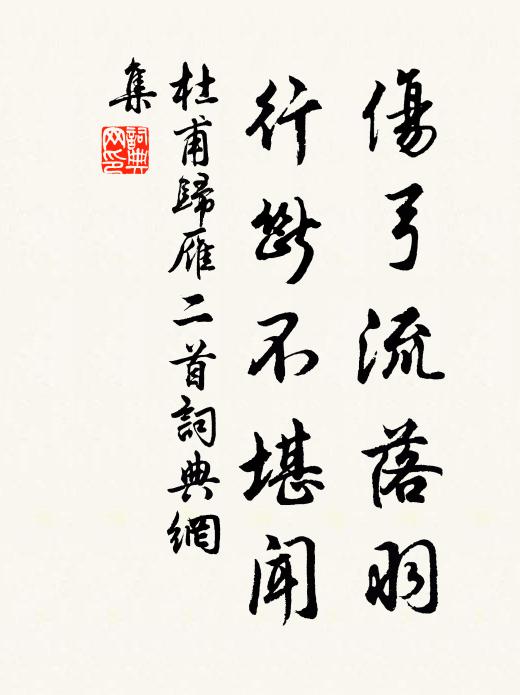 傷弓流落羽
行斷不堪聞
杜甫歸雁二首詞典網
集
詞典
网印